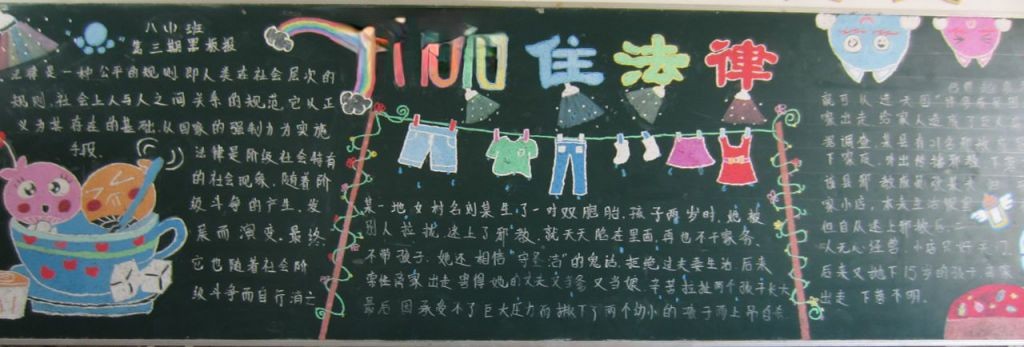 八小班
第三期黑板报
法律是一种公平的规则 即人类在社会层次的
规则.社会上人与人之间关系的规范.它以正
义为其存在的基础.以国家的强制力为实施
手段.
法律是阶级社会特有
的社会现象.随着阶
级斗争的产生、发
展而演变.最终
它也随着社会阶
级斗争而自行消亡
住法律
某一地女村名刘某生了一对双胞胎.孩子两岁时.她被
别人拉拢.迷上了邪教.就天天陷在里面.再也不干家务.
不带孩子.她还相信"守圣洁"的鬼话.拒绝过夫妻生活.后来
索性离家出走 害得她的丈夫又当爹又当娘.辛苦拉扯两个孩子长大
最后因承受不了巨大压力而撇下了两个幼小的孩子而上吊自杀
就可以进天国
出走 给家人造成了巨大
调查.某县有
下家庭.外出传播邪教
该县邪教
家小店.本来生活
但自从迷上邪教后.
以无人经营 小店只好关门
后来又抛下15岁的孩子 离家
出走 下落不明.